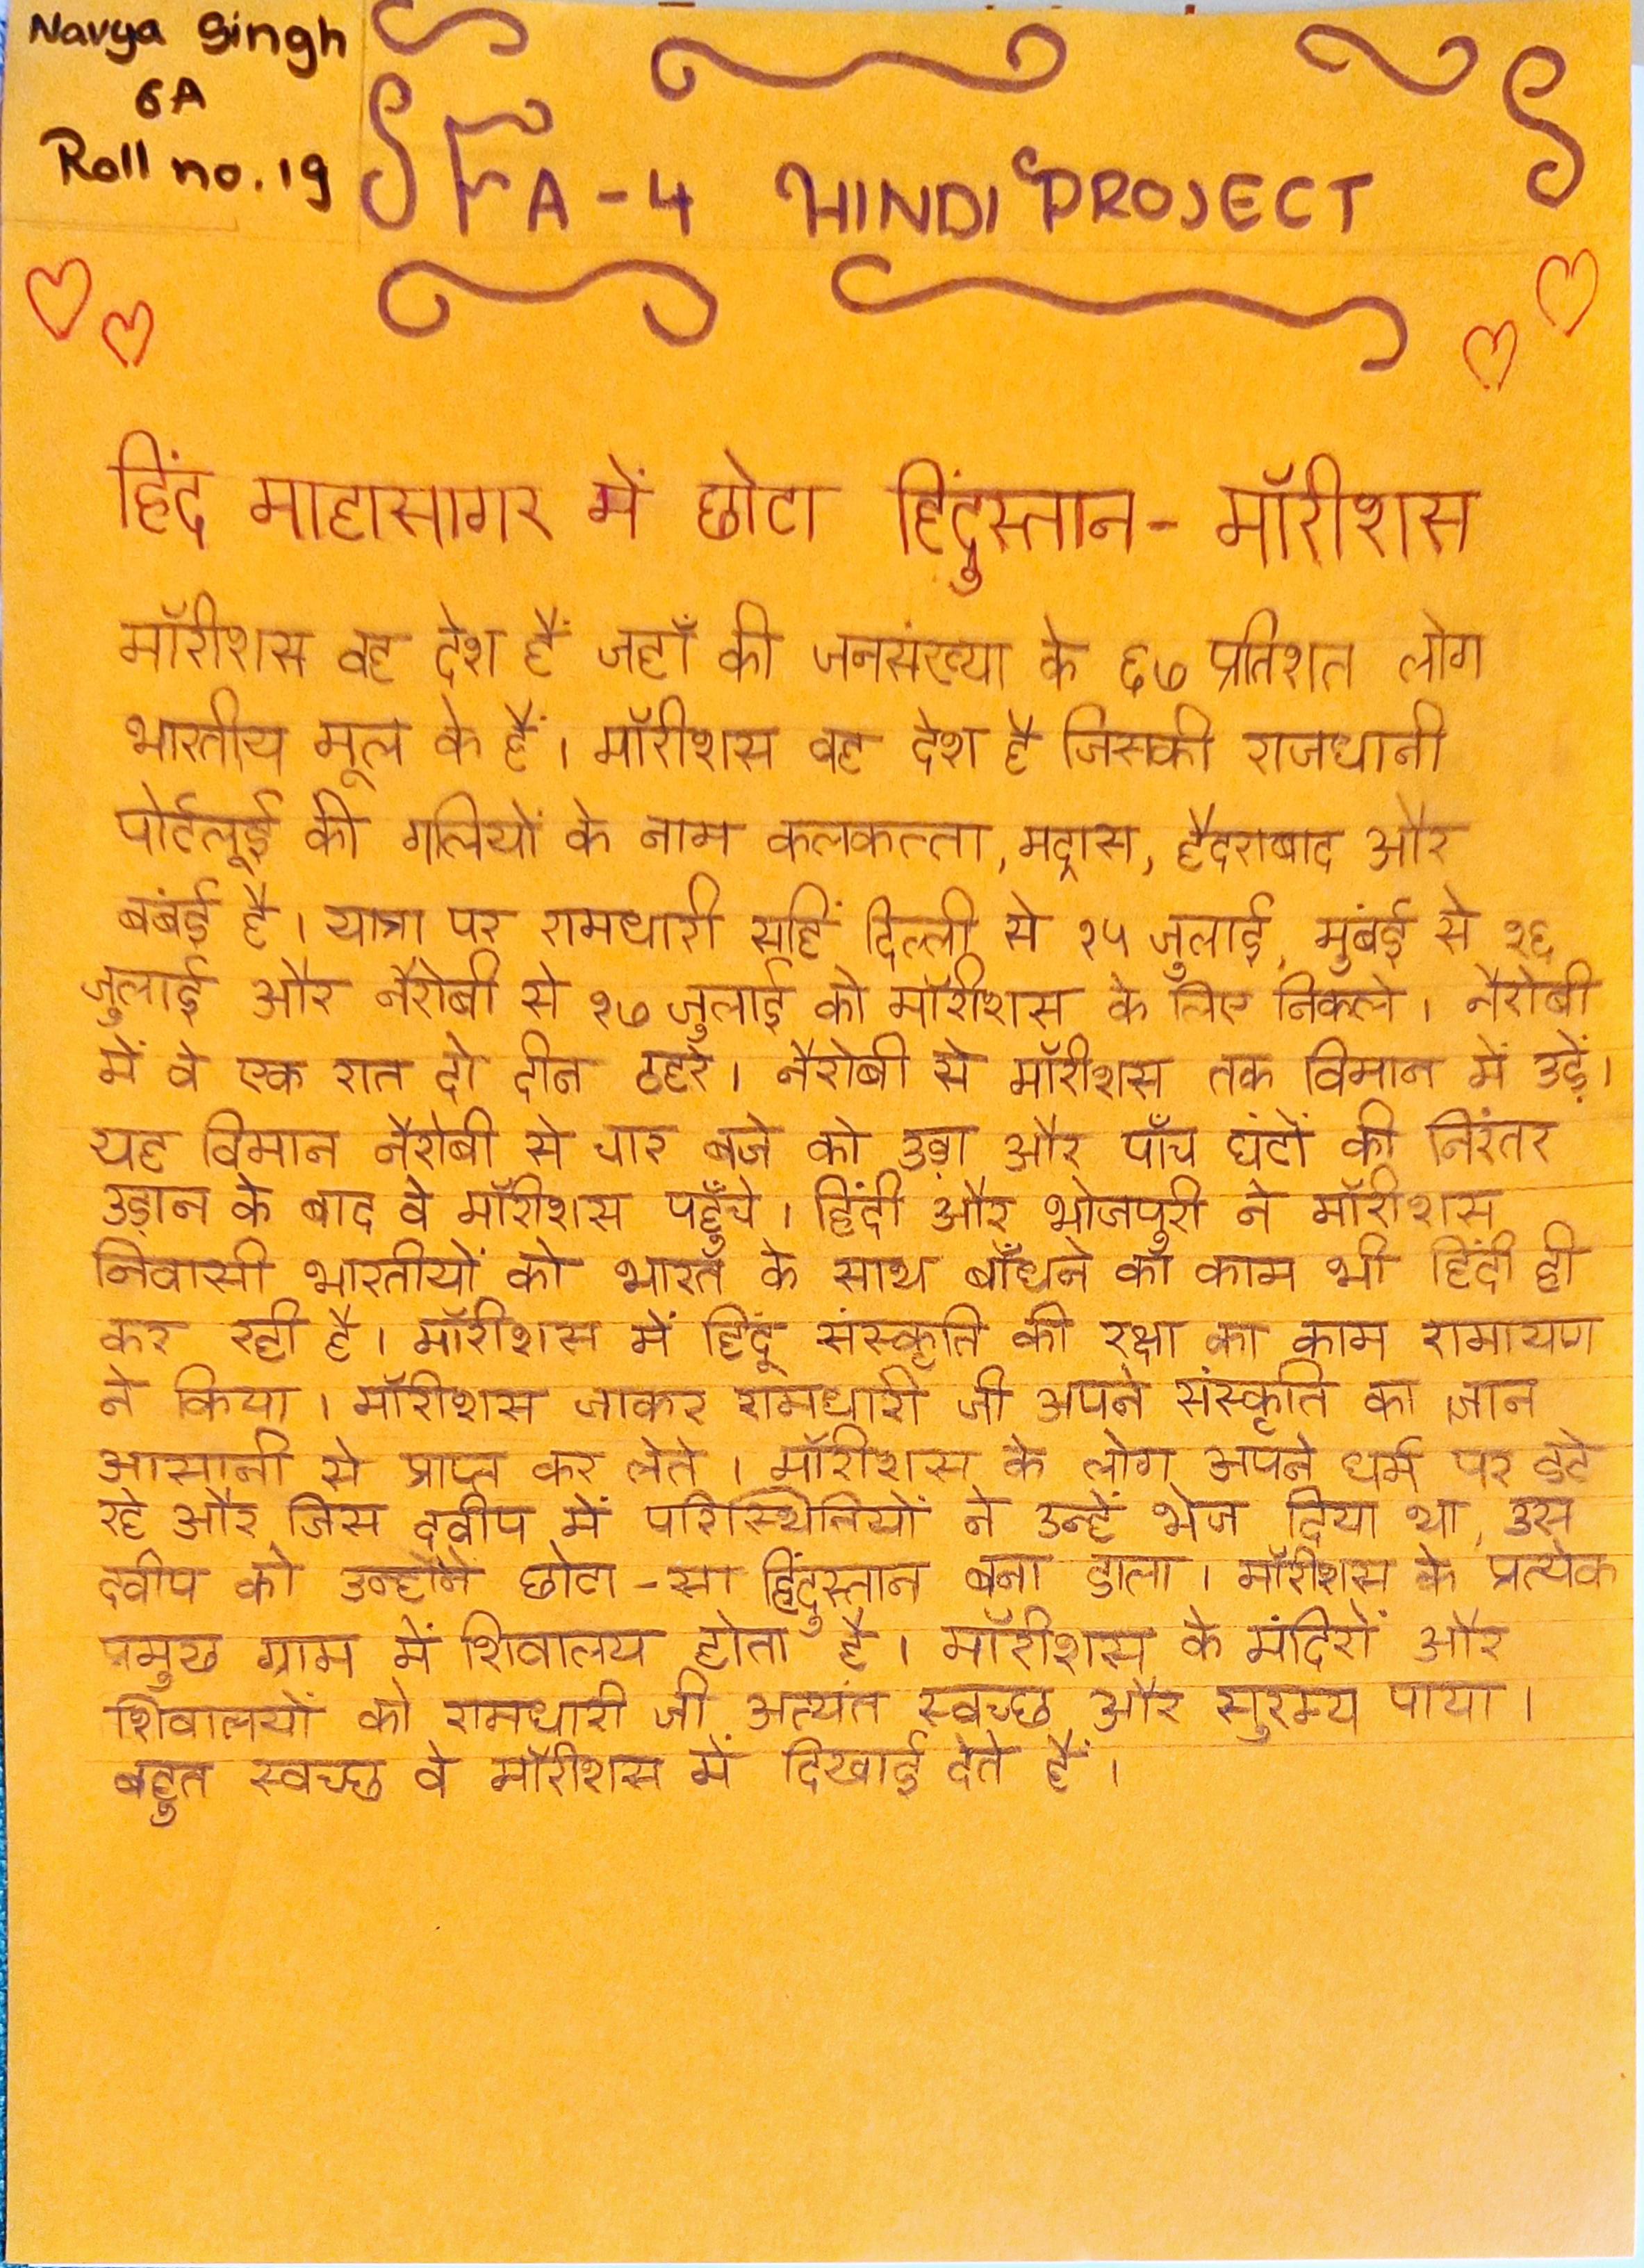 Navya Singh
6A
Roll no. 19
FA-4 HINDI PROJECT
हिंद माहासागर में छोटा हिंदुस्तान - मॉरीशस
मॉरीशस वह देश हैं जहाँ की जनसंख्या के ६७ प्रतिशत लोग
भारतीय मूल के हैं। मॉरीशस वह देश है जिसकी राजधानी
पोर्टलूई की गलियों के नाम कलकत्ता, मद्रास, हैदराबाद और
बंबई है। यात्रा पर रामधारी सहिं दिल्ली से १५ जुलाई, मुंबई से १६
जुलाई और नैरोबी से १७ जुलाई को मॉरीशस के लिए निकले। नैरोबी
में वे एक रात दो दीन ठहरे। नैरोबी से मॉरीशस तक विमान में उड़ें।
यह विमान नैरोबी से चार बजे को उड़ा और पाँच घंटों की निरंतर
उड़ान के बाद वे मॉरीशस पहुँचे। हिंदी और भोजपुरी ने मॉरीशस
निवासी भारतीयों को भारत के साथ बाँधने का काम भी हिंदी ही
कर रही है। मॉरीशस में हिंदू संस्कृति की रक्षा का काम रामायण
ने किया। मॉरीशस जाकर रामधारी जी अपने संस्कृति का ज्ञान
आसानी से प्राप्त कर लेते। मॉरीशस के लोग अपने धर्म पर डटे
रहे और जिस द्वीप में परिस्थितियों ने उन्हें भेज दिया था, उस
द्वीप को उन्होंने छोटा-सा हिंदुस्तान बना डाला। मॉरीशस के प्रत्येक
प्रमुख ग्राम में शिवालय होता है। मॉरीशस के मंदिरों और
शिवालयों को रामधारी जी अत्यंत स्वच्छ और सुरम्य पाया।
बहुत स्वच्छ वे मॉरीशस में दिखाई देते हैं।